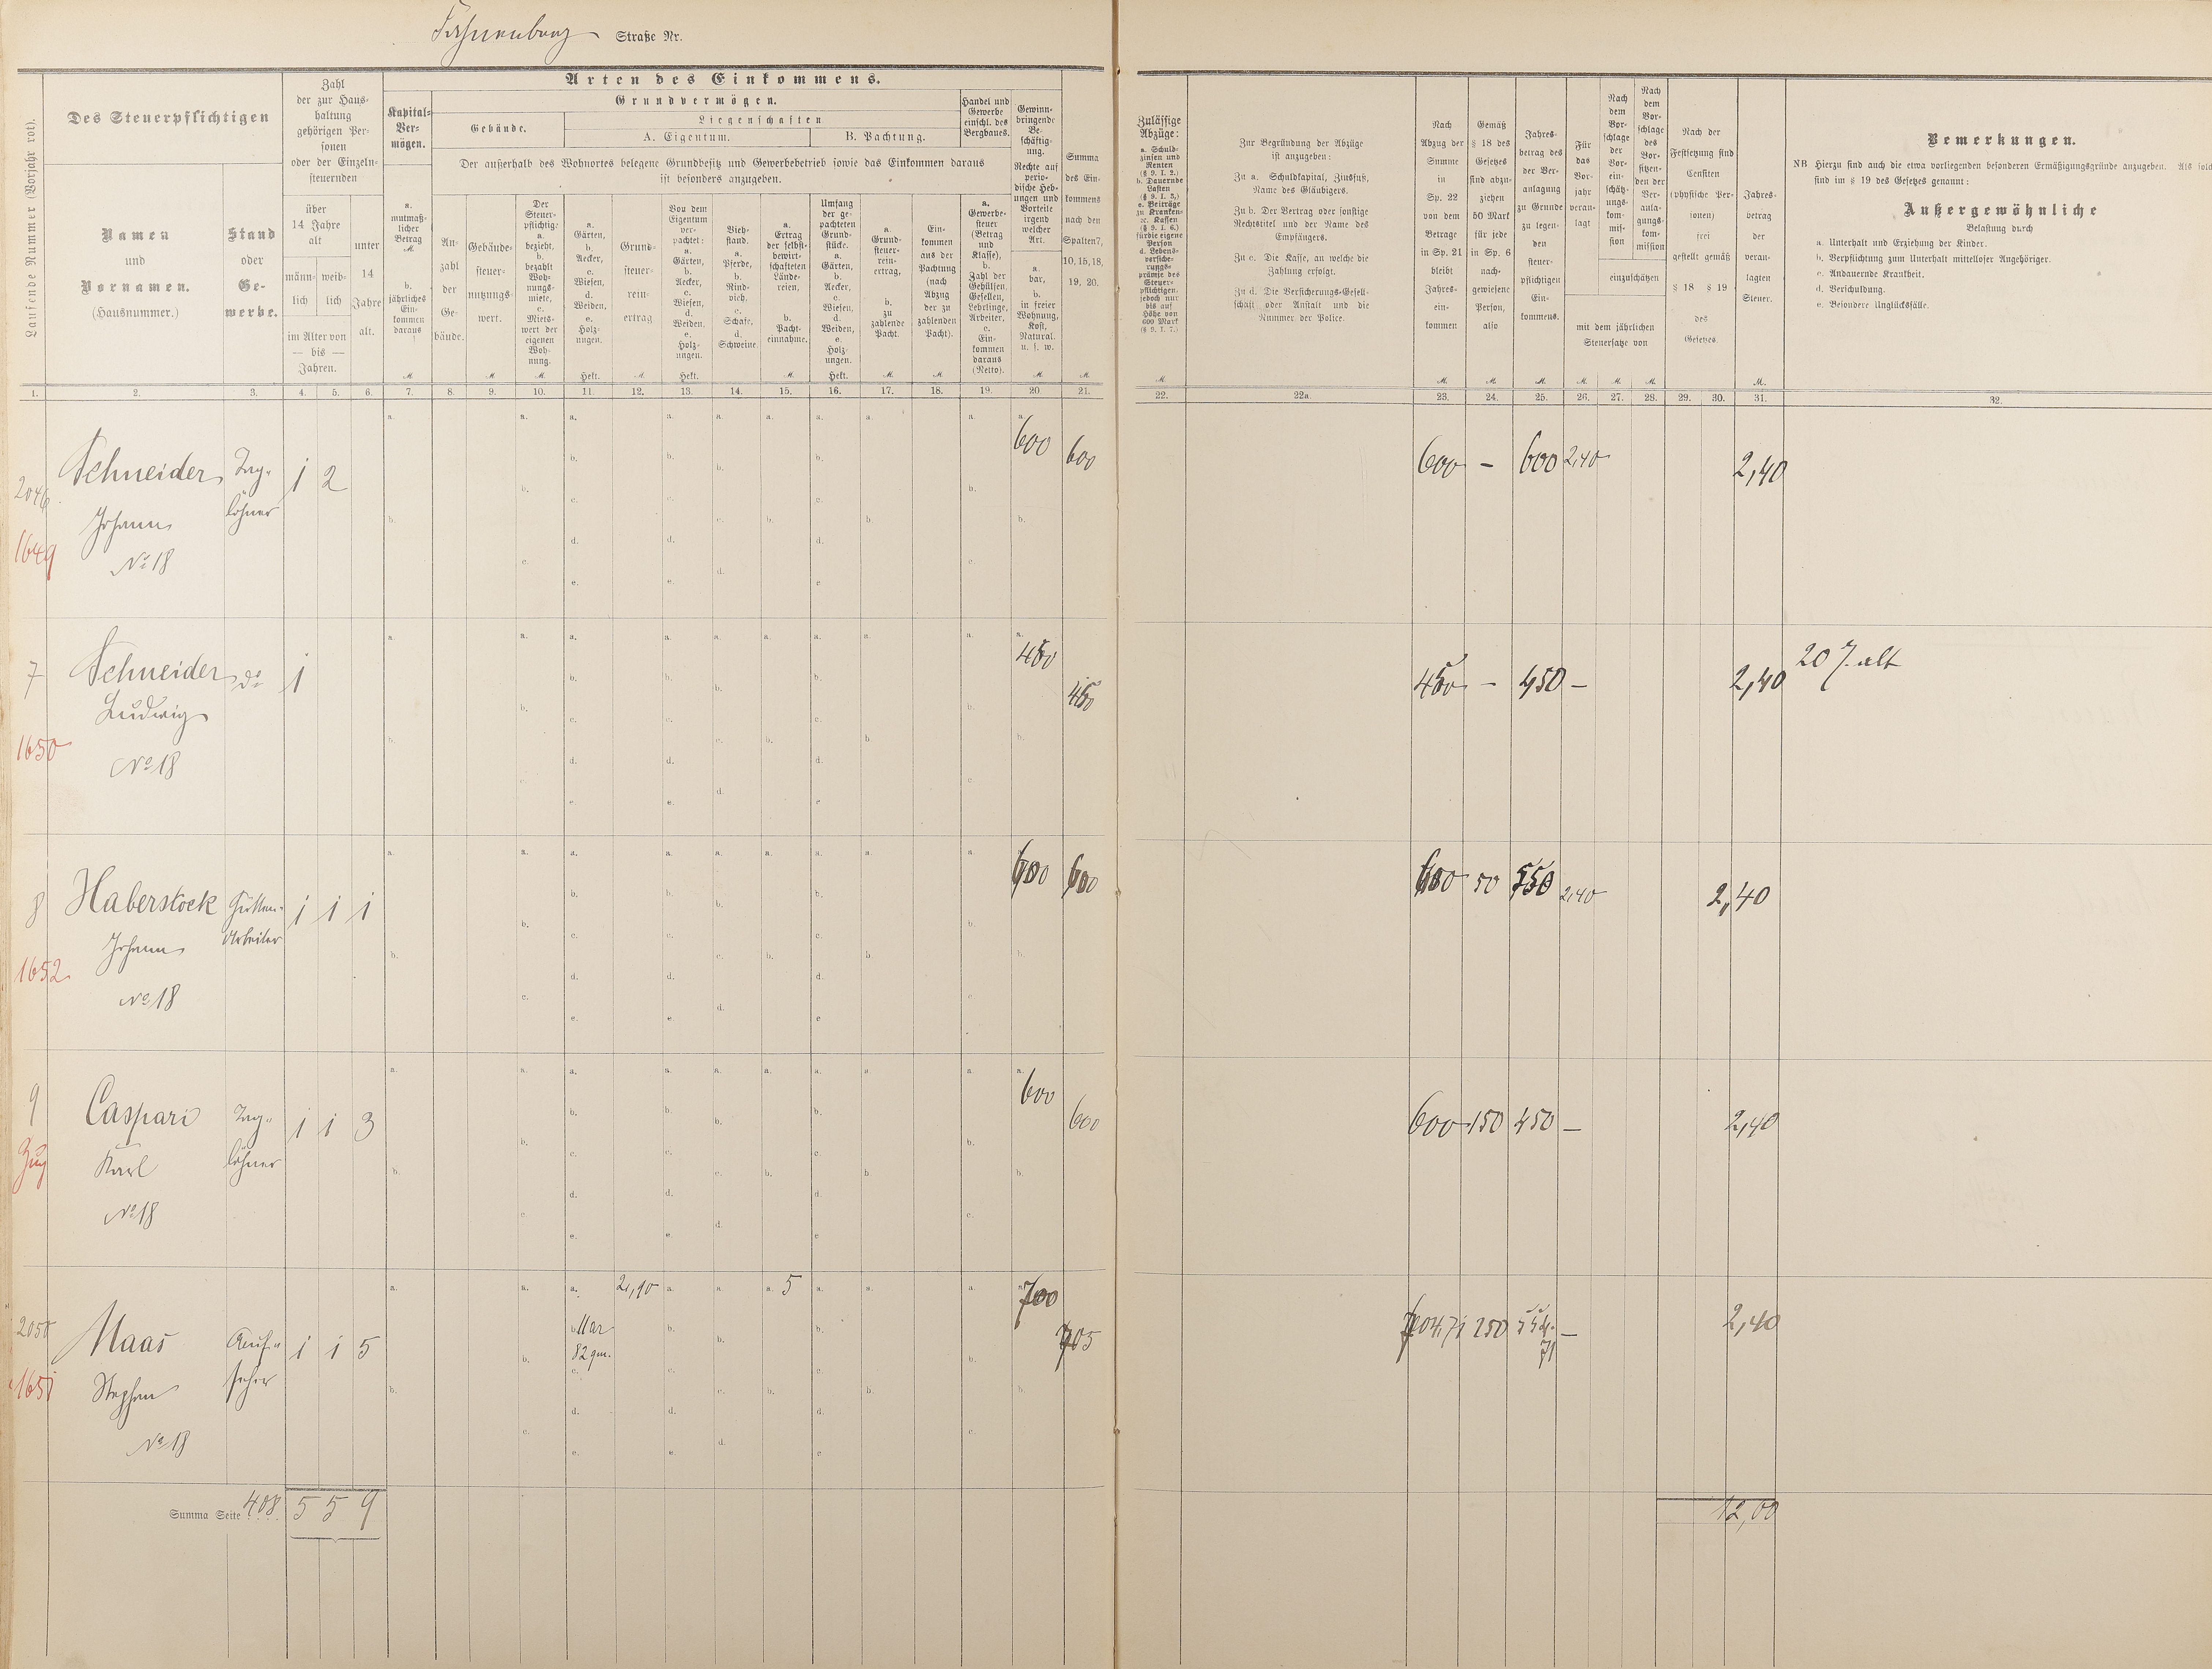 Straße Nr.
Laufende Nummer (Vorjahr rot).
Des Steuerpflichtigen
Namen
und
Vornamen.
(Hausnummer.)
Stand
oder
Ge-
werbe.
Zahl
der zur Haus-
haltung
gehörigen Per-
sonen
oder der Einzeln-
steuernden
über
14 Jahre
alt
männ-
lich
weib-
lich
im Alter von
— bis —
Jahren.
unter
14
Jahre
alt.
Arten des Einkommens.
Kapital-
Ver-
mögen.
a.
mutmaß-
licher
Betrag
M.
b.
jährliches
Ein-
kommen
daraus
M
Grundvermögen.
Gebäude.
Liegenschaften
A. Eigentum.
B. Pachtung.
Der außerhalb des Wohnortes belegene Grundbesitz und Gewerbebetrieb sowie das Einkommen daraus
ist besonders anzugeben.
An-
zahl
der
Ge-
bäude.
Gebäude-
steuer-
nutzungs-
wert.
M.
Der
Steuer-
pflichtige:
a.
bezieht,
b.
bezahlt
Woh-
nungs-
miete,
c.
Miets-
wert der
eigenen
Woh-
nung.
M.
a.
Gärten,
b.
Aecker,
c.
Wiesen,
d.
Weiden,
e.
Holz-
nungen.
Hekt.
Grund-
steuer-
rein-
ertrag
M.
Von dem
Eigentum
ver-
pachtet:
a.
Gärten,
b.
Aecker,
c.
Wiesen,
d.
Weiden,
e.
Holz-
ungen.
Hekt.
Vieh-
stand.
a.
Pferde,
b.
Rind-
vieh,
c.
Schafe,
d.
Schweine
a.
Ertrag
der selbst-
bewirt-
schafteten
Lände-
reien,
b.
Pacht-
einnahme.
M.
Umfang
der ge-
pachteten
Grund-
stücke.
a.
Gärten,
b.
Aecker,
c.
Wiesen,
d.
Weiden,
e.
Holz-
ungen.
Hekt.
a.
Grund-
steuer-
rein-
ertrag,
b.
zu
zahlende
Pacht.
M.
Ein-
kommen
aus der
Pachtung
(nach
Abzug
der zu
zahlenden
Pacht).
M
Handel und
Gewerbe
einschl. des
Bergbaues.
a.
Gewerbe-
steuer
(Betrag
und
Klasse),
b.
Zahl der
Gehülfen,
Gesellen,
Lehrlinge,
Arbeiter,
c.
Ein-
kommen
daraus
(Netto).
Gewinn-
bringende
Be-
schäftig-
ung.
Rechte auf
perio-
dische Heb-
ungen und
Vorteile
irgend
welcher
Art.
a.
bar,
b.
in freier
Wohnung,
Kost,
Natural.
u. s. w.
M.
Summa
des Ein-
kommens
nach den
Spalten 7,
10, 15, 18,
19, 20.
M.
Zulässige
Abzüge:
a. Schuld-
zinsen und
Renten
(§ 9. I. 2.)
b. Dauernde
Lasten
(§ 9. I. 3.)
c. Beiträge
zu Kranken-
ec. Kassen
(§ 9. I. 6.)
für die eigene
Person
d. Lebens-
versiche-
rungs-
prämie des
Steuer-
pflichtigen,
jedoch nur
bis auf
Höhe von
600 Mark
(§ 9. I. 7.)
M
Zur Begründung der Abzüge
ist anzugeben:
Zu a. Schuldkapital, Zinsfuß,
Name des Gläubigers.
Zu b. Der Vertrag oder sonstige
Rechtstitel und der Name des
Empfängers.
Zu c. Die Kasse, an welche die
Zahlung erfolgt.
Zu d. Die Versicherungs-Gesell-
schaft oder Anstalt und die
Nummer der Police.
Nach
Abzug der
Summe
in
Sp. 22
von dem
Betrage
in Sp. 21
bleibt
Jahres-
ein-
kommen
M.
Gemäß
§ 18 des
Gesetzes
sind abzu-
ziehen
50 Mark
für jede
in Sp. 6
nach-
gewiesene
Person,
also
M.
Jahres-
betrag des
der Ver-
anlagung
zu Grunde
zu legen-
den
steuer-
pflichtigen
Ein-
kommens.
M.
Für
das
Vor-
jahr
veran-
lagt
Nach
dem
Vor-
schlage
der
Vor-
ein-
schätz-
ungs-
kom-
mis-
sion
Nach
dem
Vor-
schlage
des
Vor-
sitzen-
den der
Ver-
anla-
gungs-
kom-
mission
einzuschätzen
mit dem jährlichen
Steuersatze von
M. M. M.
Nach der
Festsetzung sind
Censiten
(physische Per-
sonen)
frei
gestellt gemäß
§ 18 § 19
des
Gesetzes.
Jahres-
betrag
der
veran-
lagten
Steuer.
M.
Bemerkungen.
NB Hierzu sind auch die etwa vorliegenden besonderen Ermäßigungsgründe anzugeben. Als solche
sind im § 19 des Gesetzes genannt:
Außergewöhnliche
Belastung durch
a. Unterhalt und Erziehung der Kinder.
b. Verpflichtung zum Unterhalt mittelloser Angehöriger.
c. Andauernde Krankheit.
d. Verschuldung.
e. Besondere Unglücksfälle.
1. 2. 3. 4. 5. 6. 7. 8. 9. 10. 11. 12. 13. 14. 15. 16. 17. 18. 19. 20. 21. 22. 22a. 23. 24. 25. 26. 27. 28. 29. 30. 31. 32.
2046 Schneider Tag- 1 2 600 600 600 – 600 2,40 2,40
löhner
Johann
1649
No 18
7 Schneider do 1 450 450 450 – 450 – 2,40 20 J. alt
Ludwig
1650
No 18
8 Haberstock Hütten- 1 1 1 600 600 600 50 550 2,40 2,40
Arbeiter
Johann
1652
No 18
9 Caspari Tag- 1 1 3 600 600 600 150 450 – 2,40
Zug
Karl löhner
No 18
2050 Maas Auf- 1 1 5 11 ar 82 qm. 2,90 5 700 705 704,71 250 – 2,40
seher
1651 Stephan
No 18
Summa Seite 408 5 5 9 12,00